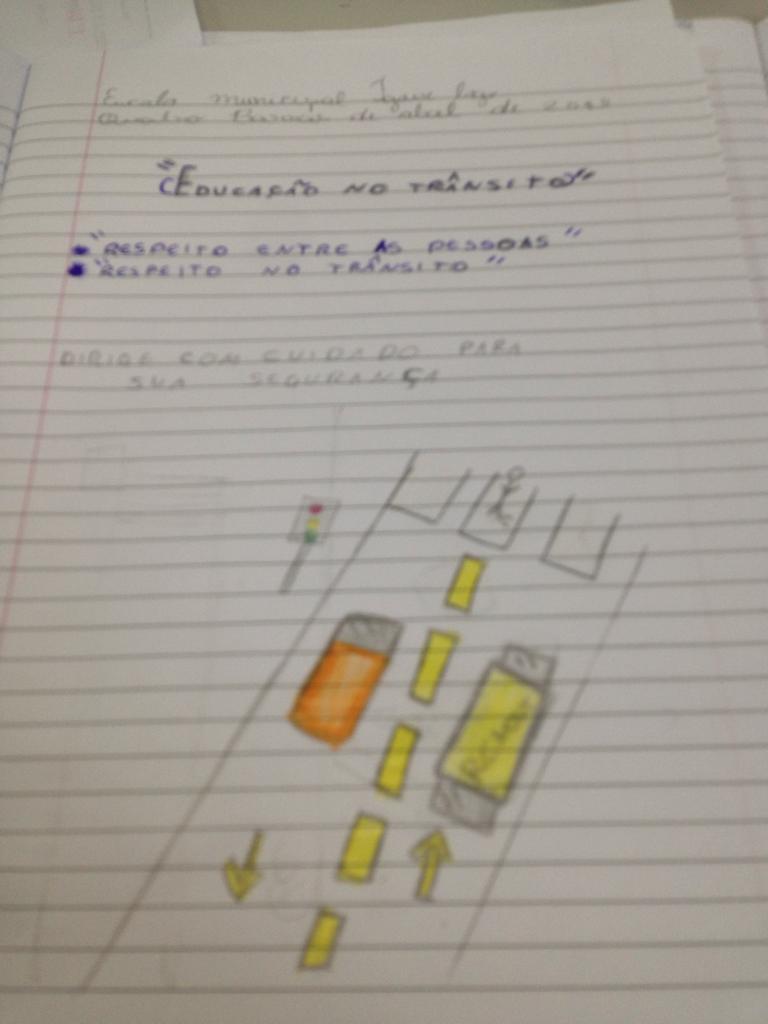 Escola municipal
de abril de
"EDUCAÇÃO NO TRÂNSITO"
"RESPEITO ENTRE AS PESSOAS"
"RESPEITO NO TRÂNSITO"
DIRIGE COM CUIDADO PARA
SUA SEGURANÇA